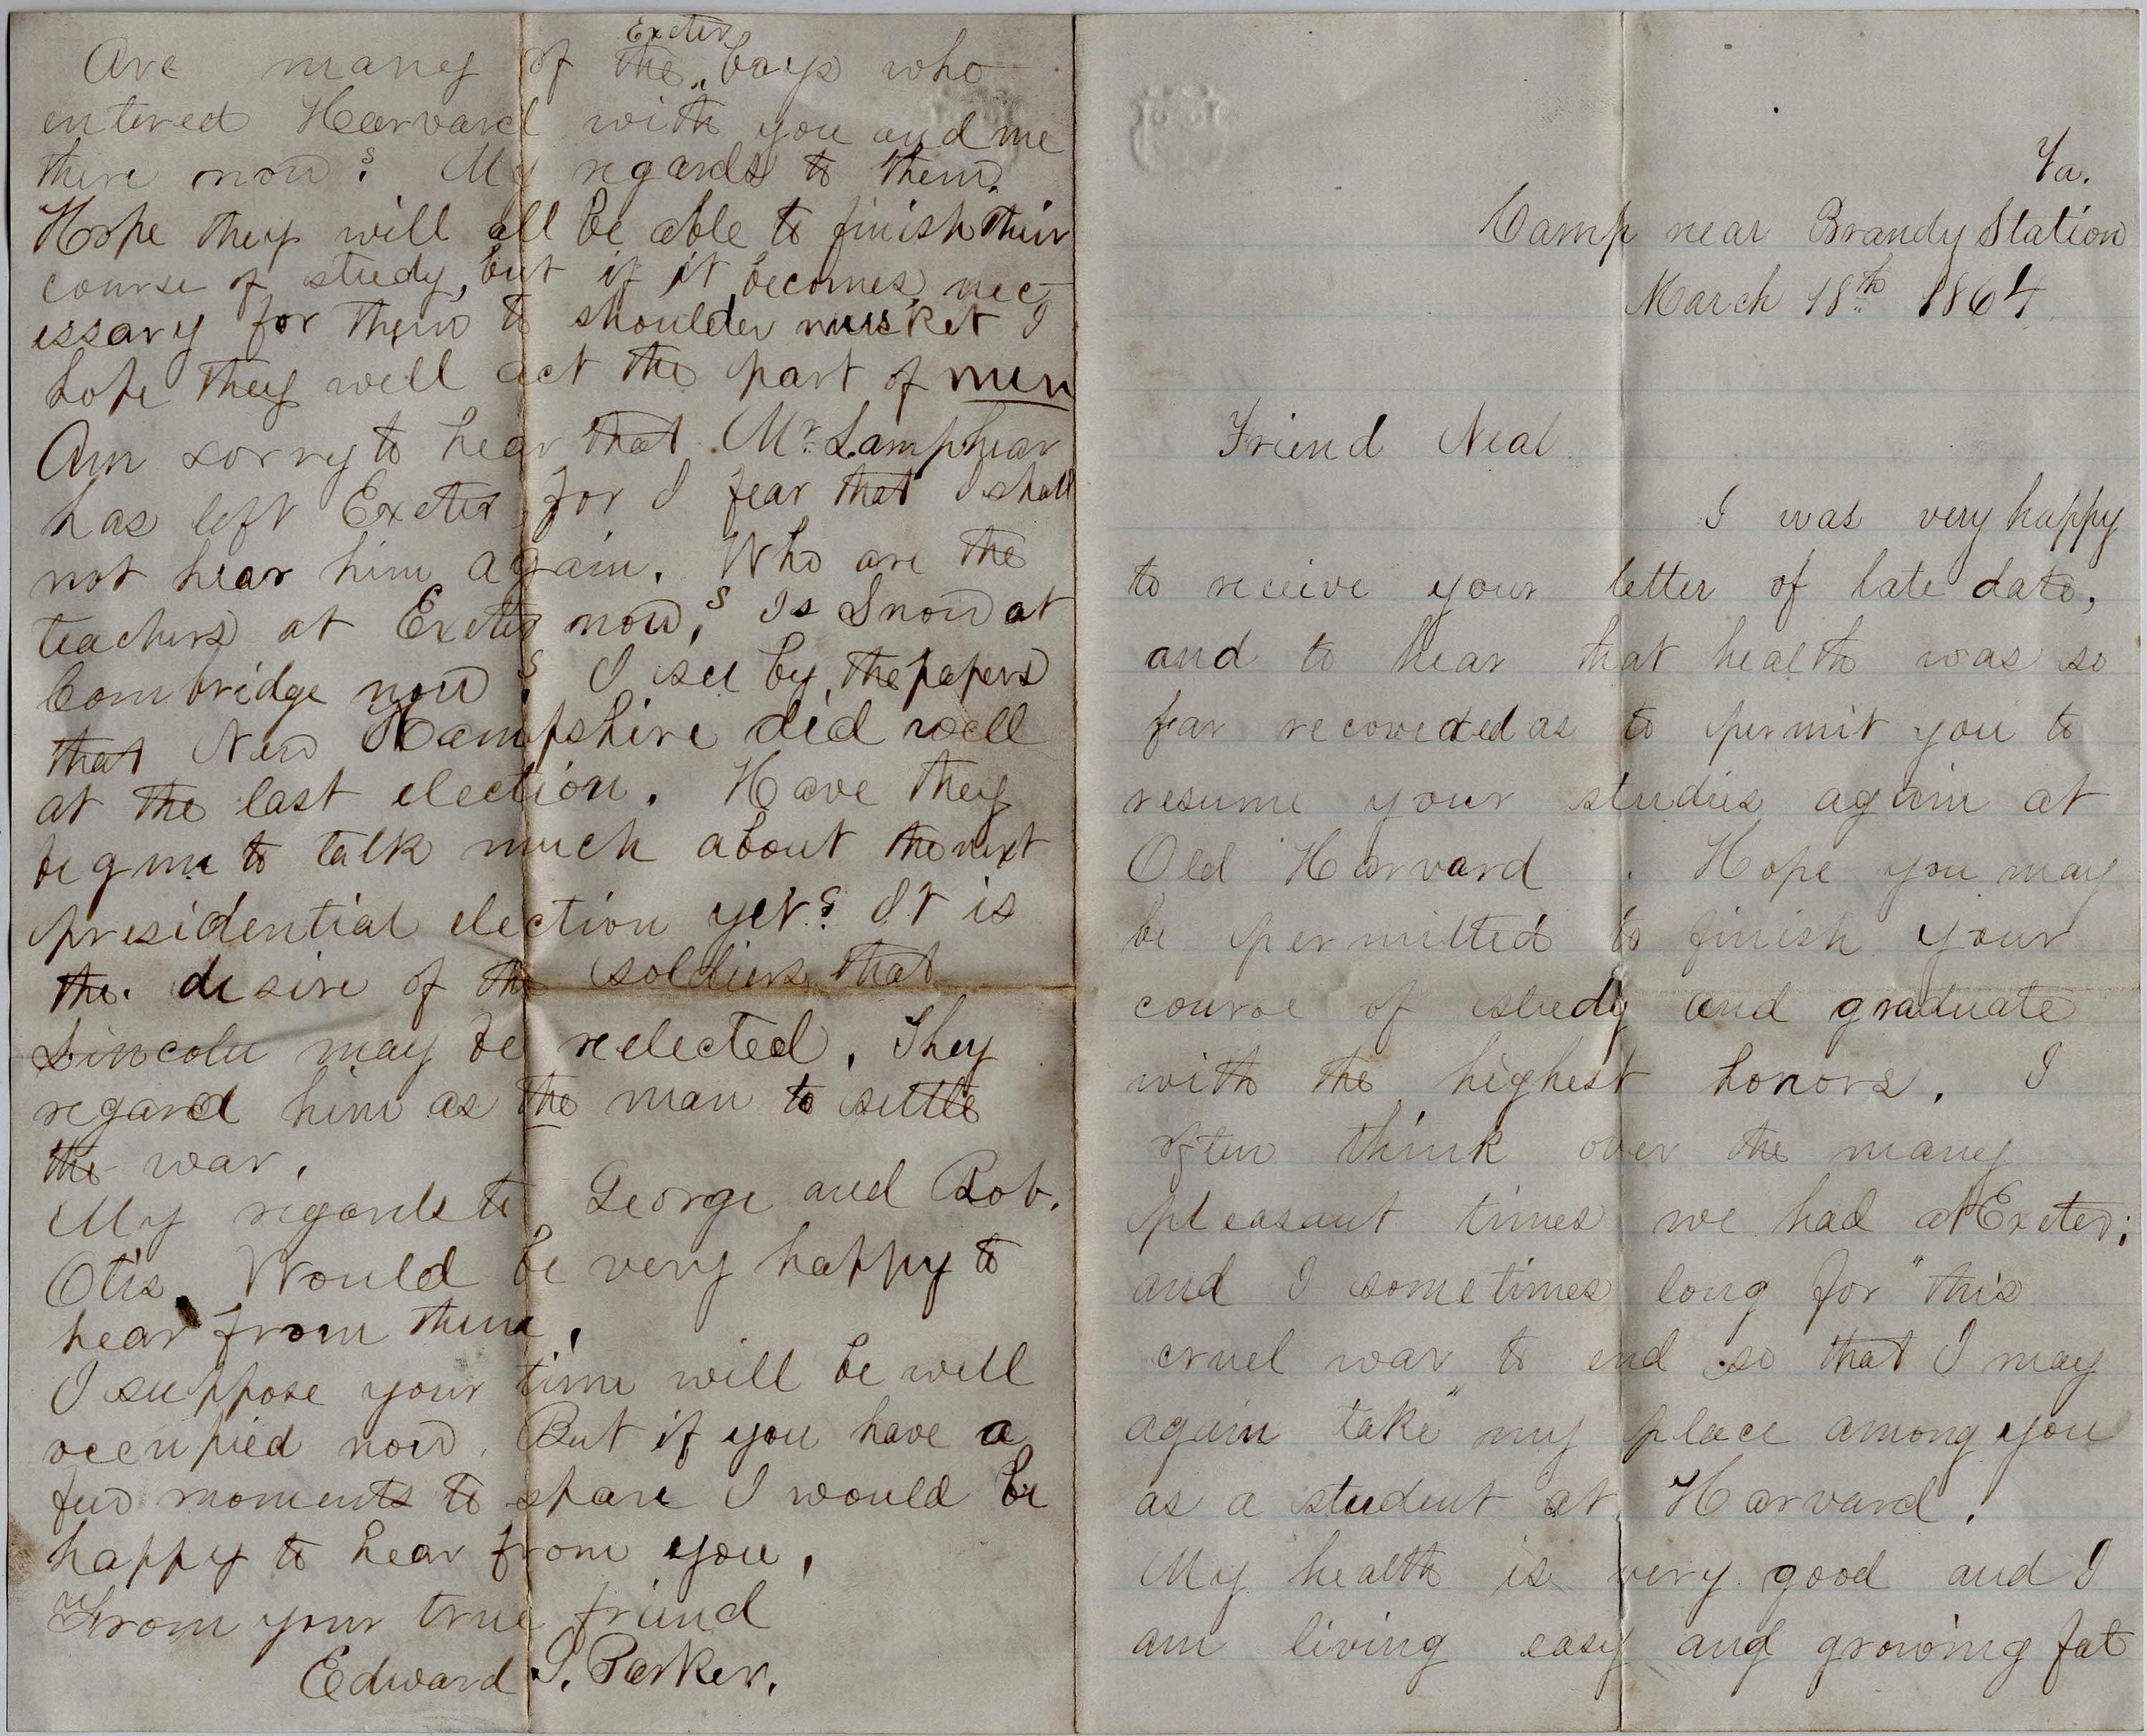 Va.
Camp near Brandy Station
March 18th 1864.
Friend Neal
I was very happy
to receive your letter of late date,
and to hear that health was so
far recovered as to permit you to
resume your studies again at
Old Harvard. Hope you may
be permitted to finish your
course of study and graduate
with the highest honors. I
often think over the many
pleasant times we had at Exeter;
and I sometimes long for "this
cruel war to end so that I may
again take" my place among you
as a student at Harvard.
My health is very good and I
am living easy and growing fat
Exeter
Are many of the " boys who
entered Harvard with you and me
there now? My regards to them.
Hope they will all be able to finish their
course of study, but if it becomes nec-
essary for them to shoulder musket I
hope they will act the part of men
Am sorry to hear that Mr. Lamphear
has left Exeter for I fear that I shall
not hear him again. Who are the
teachers at Exeter now? Is Snow at
Cambridge now? I see by the papers
that New Hampshire did well
at the last election. Have they
begun to talk much about the next
presidential election yet? It is
the desire of the soldiers that
Lincoln may be relected. They
regard him as the man to settle
the war.
My regards to George and Rob.
Otis. Would be very happy to
hear from them.
I suppose your time will be well
occupied now. But if you have a
few moments to spare I would be
happy to hear from you.
From your true friend
Edward J. Parker.